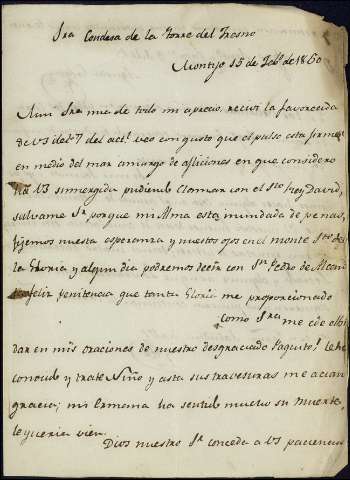 Sra Condesa de la Torre del Fresno
Montijo 15 de Febo. de 1860
Muy Sra mia de todo mi aprecio, recivi la favorecida
de VS del 7 del actl. veo con gusto que el pulso esta firme
en medio del mar amargo de afliciones en que considero
ha VS sumergida pudiendo clamar con el Sto Rey David,
salvame Sr porque mi Alma esta inundada de penas,
fijemos nuestra esperanza y nuestros ojos en el monte Sto de
la Gloria y algun dia podremos decir con Sn Pedro de Alcan
feliz penitencia que tanta Gloria me proporcionado
como Sra me è de olbi
dar en mis oraciones de nuestro desgraciado Paquito! le he
conocido y trate Niño y asta sus travesuras me acian
gracia; mi Ermana ha sentido mucho su muerte
le queria vien.
Dios nuestro Sr conceda a VS paciencia